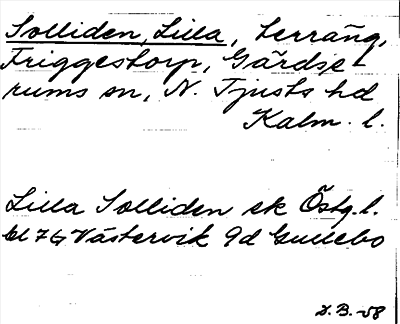 Solliden, Lilla, terräng,
Friggestorp, Gärdse-
rums sn, N. Tjusts hd
Kalm. l.
Lilla Solliden ek Östg. l.
bl 7G Västervik 9d Gullebo
D.B.-58